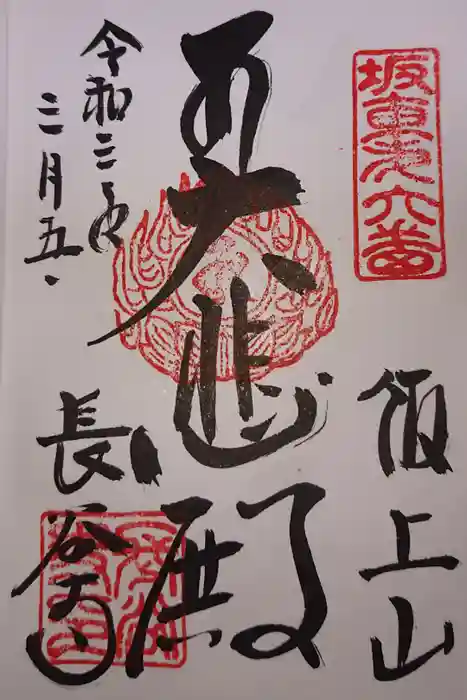 坂東第六番
飯上山
大悲殿
令和三年
三月五日
長谷寺